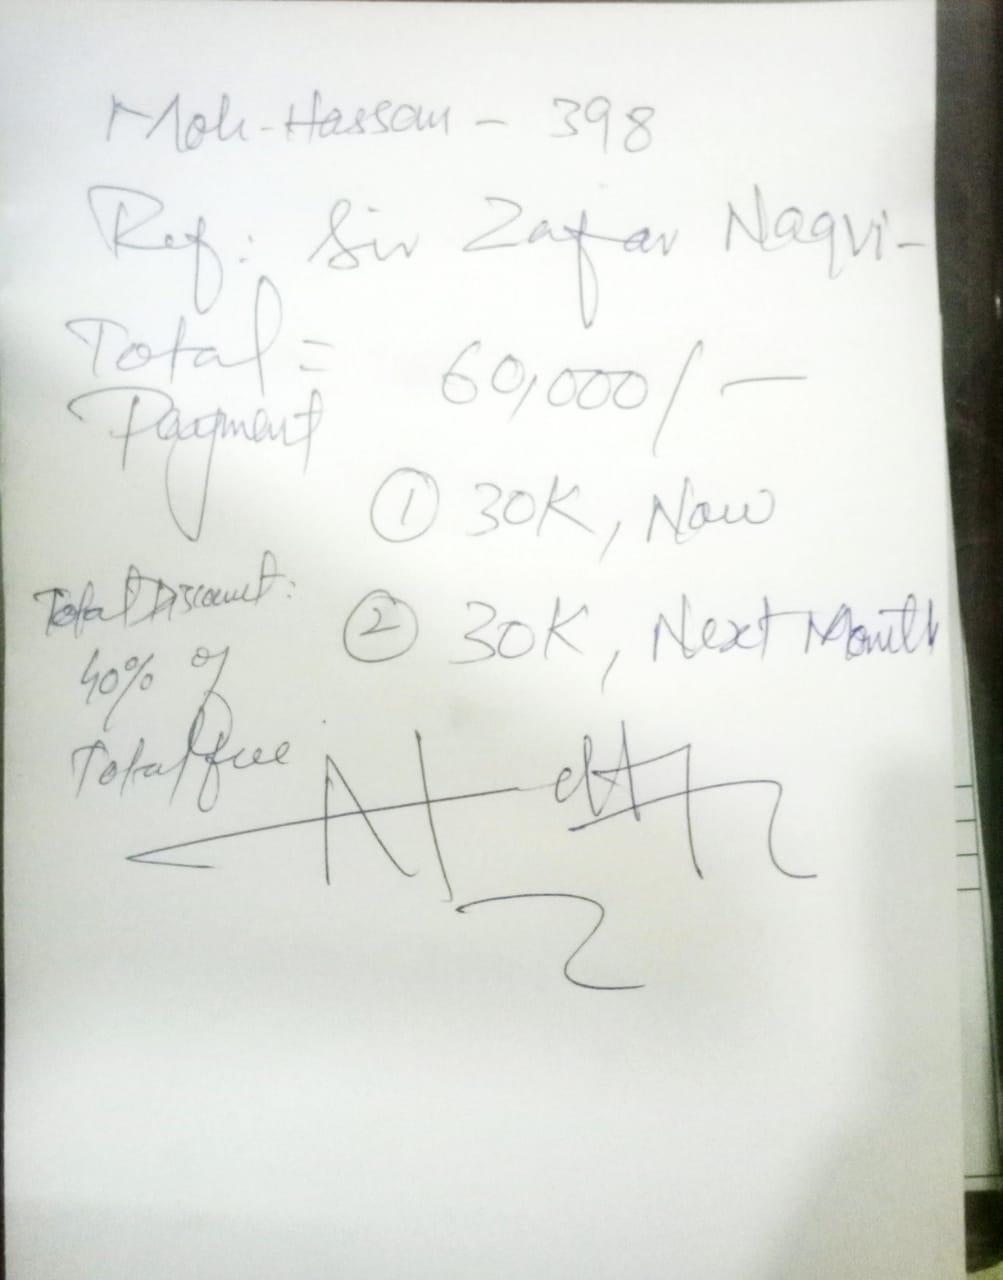 Moh-Hassan - 398
Ref: Sir Zafar Naqvi-
Total = 60,000/-
Payment
① 30K, Now
② 30K, Next Month
Total Discount:
40% of
Total fee